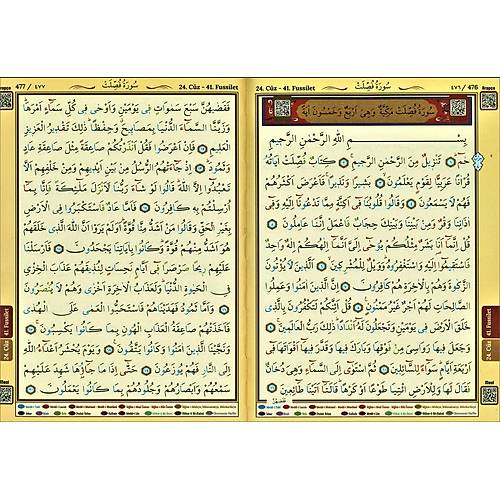 24. Cüz - 41. Fussilet سُورَةُ فُصِّلَتْ ٤٧٦ / 476
سُورَةُ فُصِّلَتْ مَكِّيَّةٌ وَهِيَ اَرْبَعٌ وَخَمْسُونَ اٰيَةً
بِسْمِ اللّٰهِ الرَّحْمٰنِ الرَّحِيمِ
حٰمٓ تَنْزِيلٌ مِنَ الرَّحْمٰنِ الرَّحِيمِ كِتَابٌ فُصِّلَتْ اٰيَاتُهُ
قُرْاٰنًا عَرَبِيًّا لِقَوْمٍ يَعْلَمُونَ بَشِيرًا وَنَذِيرًا فَاَعْرَضَ اَكْثَرُهُمْ
فَهُمْ لَا يَسْمَعُونَ وَقَالُوا قُلُوبُنَا فِي اَكِنَّةٍ مِمَّا تَدْعُونَا اِلَيْهِ وَفِي
اٰذَانِنَا وَقْرٌ وَمِنْ بَيْنِنَا وَبَيْنِكَ حِجَابٌ فَاعْمَلْ اِنَّنَا عَامِلُونَ
قُلْ اِنَّمَا اَنَا بَشَرٌ مِثْلُكُمْ يُوحٰى اِلَيَّ اَنَّمَا اِلٰهُكُمْ اِلٰهٌ وَاحِدٌ
فَاسْتَقِيمُوا اِلَيْهِ وَاسْتَغْفِرُوهُ وَوَيْلٌ لِلْمُشْرِكِينَ اَلَّذِينَ لَا يُؤْتُونَ
الزَّكٰوةَ وَهُمْ بِالْاٰخِرَةِ هُمْ كَافِرُونَ اِنَّ الَّذِينَ اٰمَنُوا وَعَمِلُوا
الصَّالِحَاتِ لَهُمْ اَجْرٌ غَيْرُ مَمْنُونٍ قُلْ اَئِنَّكُمْ لَتَكْفُرُونَ بِالَّذِي
خَلَقَ الْاَرْضَ فِي يَوْمَيْنِ وَتَجْعَلُونَ لَهُ اَنْدَادًا ذٰلِكَ رَبُّ الْعَالَمِينَ
وَجَعَلَ فِيهَا رَوَاسِيَ مِنْ فَوْقِهَا وَبَارَكَ فِيهَا وَقَدَّرَ فِيهَا اَقْوَاتَهَا فِي
اَرْبَعَةِ اَيَّامٍ سَوَاءً لِلسَّائِلِينَ ثُمَّ اسْتَوٰى اِلَى السَّمَاءِ وَهِيَ دُخَانٌ
فَقَالَ لَهَا وَلِلْاَرْضِ ائْتِيَا طَوْعًا اَوْ كَرْهًا قَالَتَا اَتَيْنَا طَائِعِينَ
24. Cüz - 41. Fussilet
Meal
477 / ٤٧٧ سُورَةُ فُصِّلَتْ
فَقَضٰيهُنَّ سَبْعَ سَمٰوَاتٍ فِي يَوْمَيْنِ وَاَوْحٰى فِي كُلِّ سَمَاءٍ اَمْرَهَا
وَزَيَّنَّا السَّمَاءَ الدُّنْيَا بِمَصَابِيحَ وَحِفْظًا ذٰلِكَ تَقْدِيرُ الْعَزِيزِ
الْعَلِيمِ فَاِنْ اَعْرَضُوا فَقُلْ اَنْذَرْتُكُمْ صَاعِقَةً مِثْلَ صَاعِقَةِ عَادٍ
وَثَمُودَ اِذْ جَاءَتْهُمُ الرُّسُلُ مِنْ بَيْنِ اَيْدِيهِمْ وَمِنْ خَلْفِهِمْ اَلَّا
تَعْبُدُوا اِلَّا اللّٰهَ قَالُوا لَوْ شَاءَ رَبُّنَا لَاَنْزَلَ مَلٰئِكَةً فَاِنَّا بِمَا
اُرْسِلْتُمْ بِهِ كَافِرُونَ فَاَمَّا عَادٌ فَاسْتَكْبَرُوا فِي الْاَرْضِ
بِغَيْرِ الْحَقِّ وَقَالُوا مَنْ اَشَدُّ مِنَّا قُوَّةً اَوَلَمْ يَرَوْا اَنَّ اللّٰهَ الَّذِي خَلَقَهُمْ
هُوَ اَشَدُّ مِنْهُمْ قُوَّةً وَكَانُوا بِاٰيَاتِنَا يَجْحَدُونَ فَاَرْسَلْنَا
عَلَيْهِمْ رِيحًا صَرْصَرًا فِي اَيَّامٍ نَحِسَاتٍ لِنُذِيقَهُمْ عَذَابَ الْخِزْيِ
فِي الْحَيٰوةِ الدُّنْيَا وَلَعَذَابُ الْاٰخِرَةِ اَخْزٰى وَهُمْ لَا يُنْصَرُونَ
وَاَمَّا ثَمُودُ فَهَدَيْنَاهُمْ فَاسْتَحَبُّوا الْعَمٰى عَلَى الْهُدٰى
فَاَخَذَتْهُمْ صَاعِقَةُ الْعَذَابِ الْهُونِ بِمَا كَانُوا يَكْسِبُونَ
وَنَجَّيْنَا الَّذِينَ اٰمَنُوا وَكَانُوا يَتَّقُونَ وَيَوْمَ يُحْشَرُ اَعْدَاءُ اللّٰهِ
اِلَى النَّارِ فَهُمْ يُوزَعُونَ حَتّٰى اِذَا مَا جَاؤُهَا شَهِدَ عَلَيْهِمْ
سَمْعُهُمْ وَاَبْصَارُهُمْ وَجُلُودُهُمْ بِمَا كَانُوا يَعْمَلُونَ
24. Cüz - 41. Fussilet
Meal